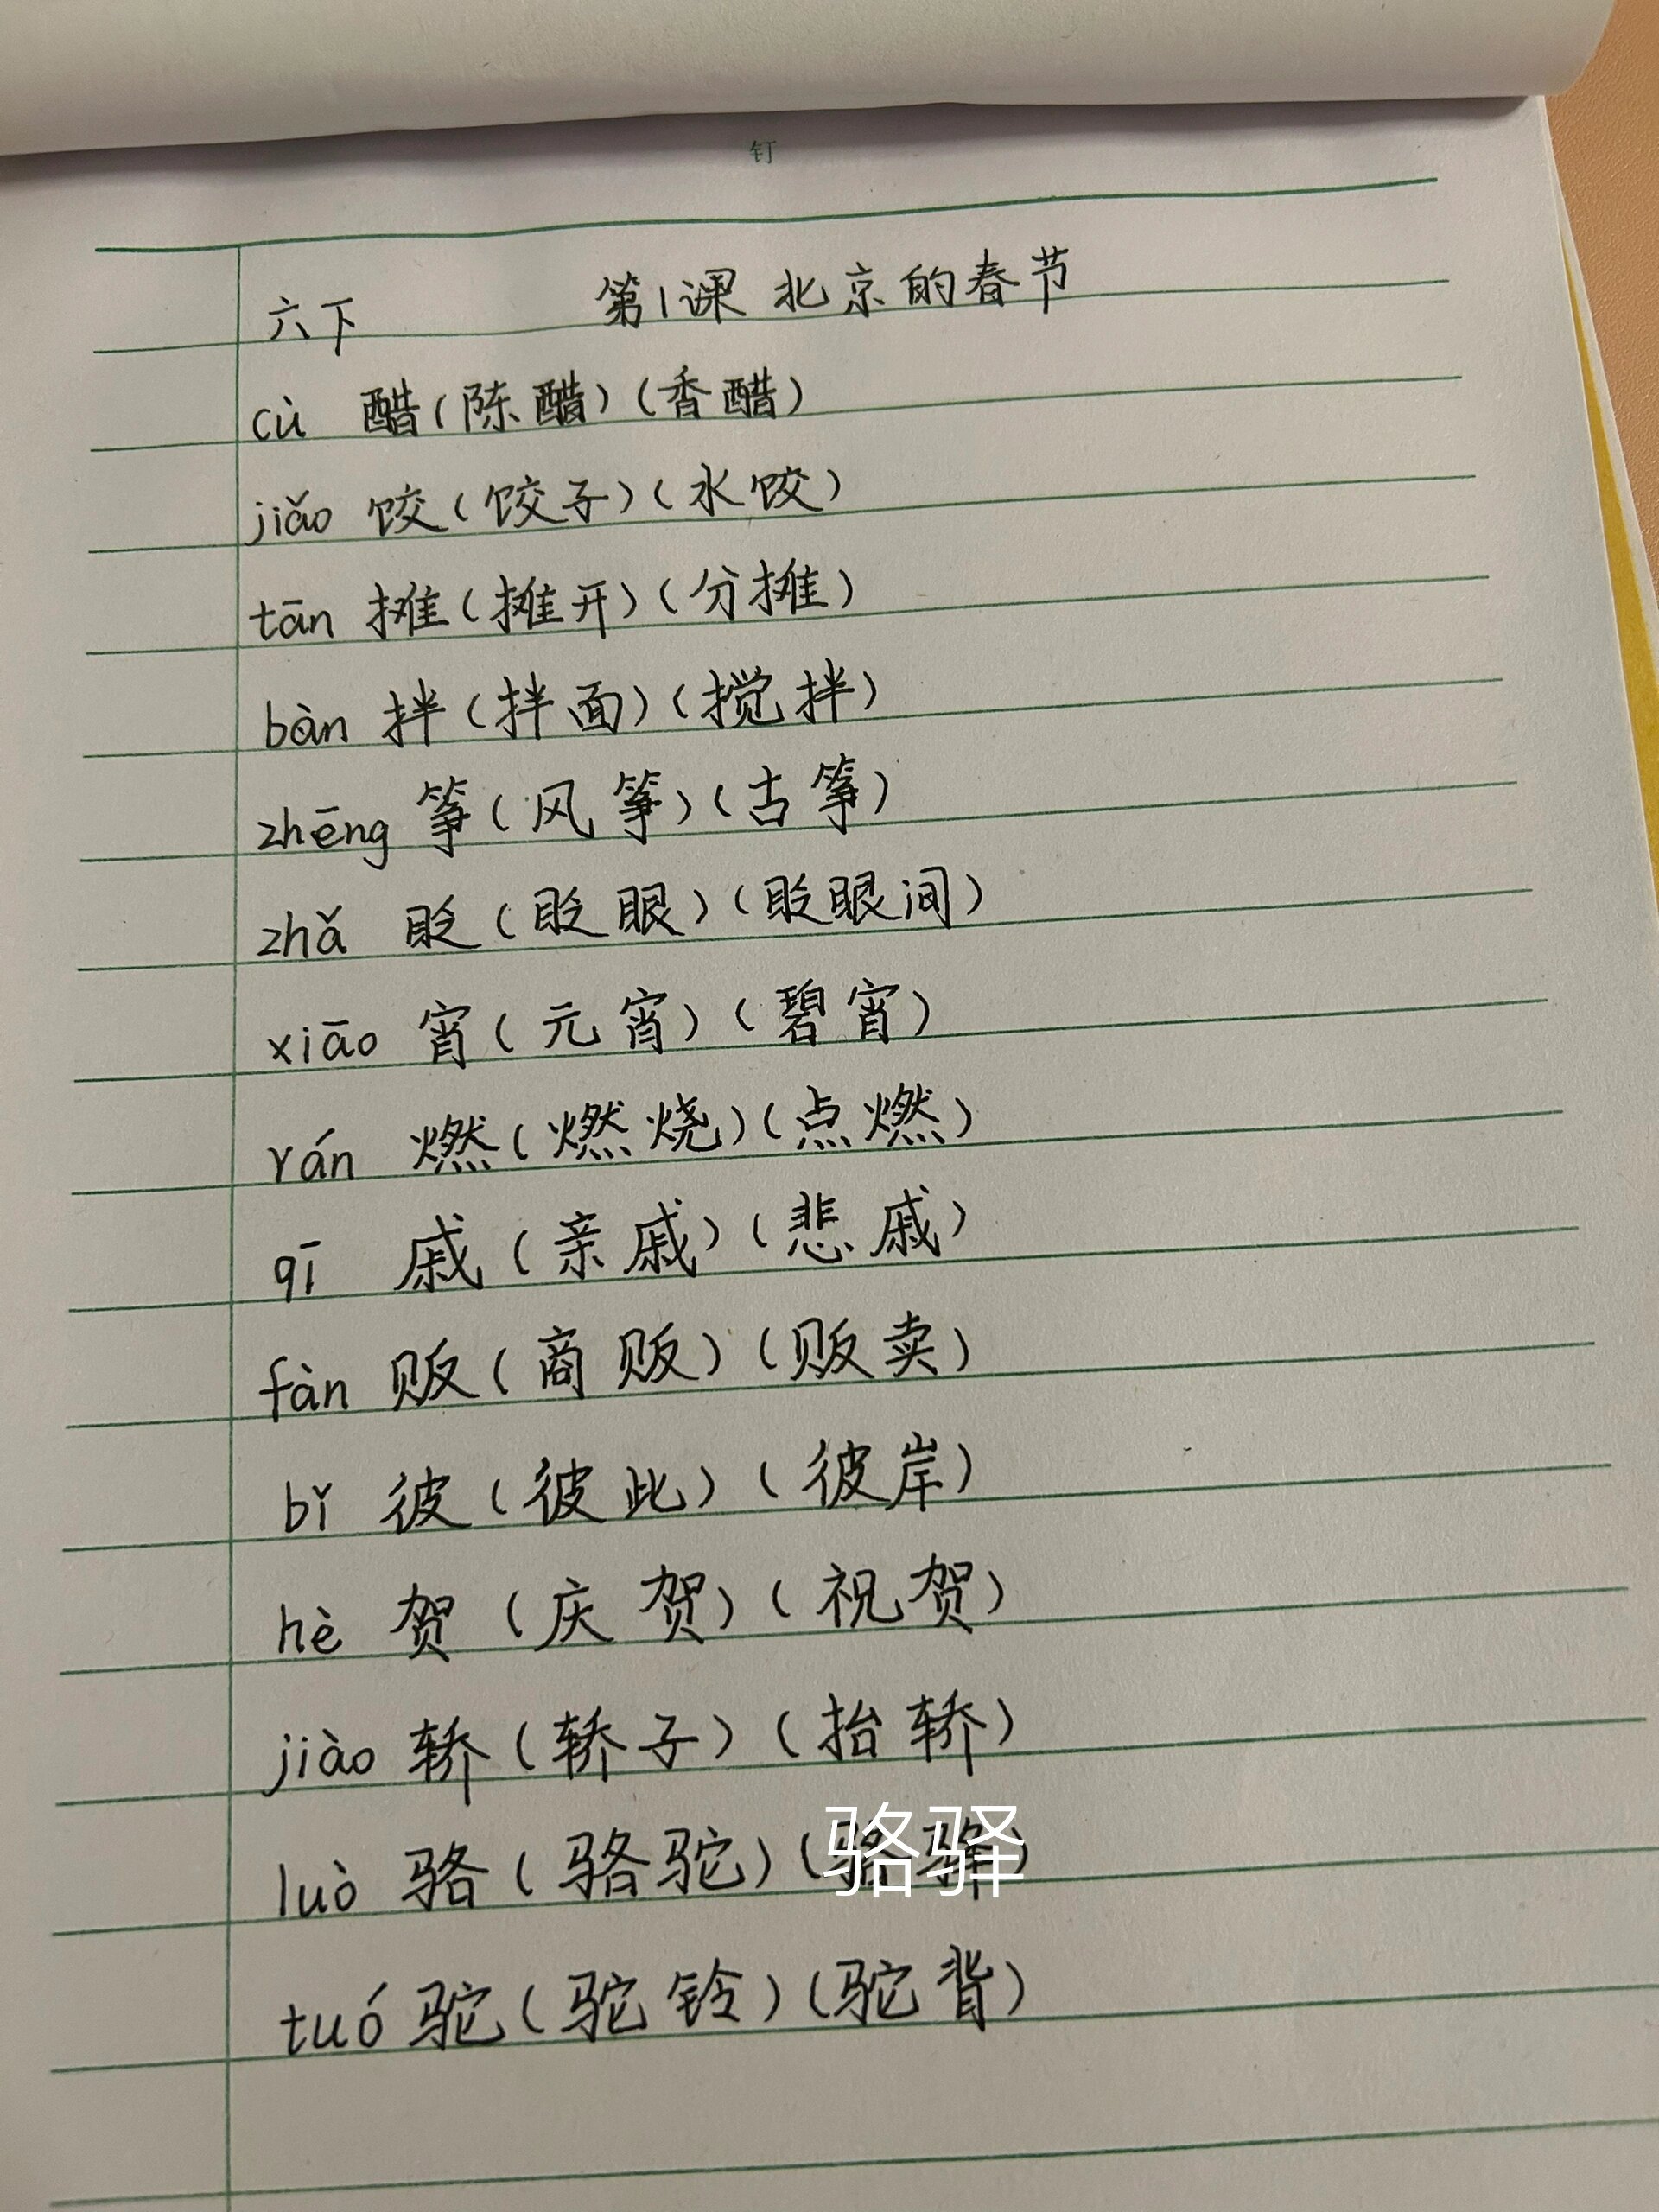 钉
六下 第1课 北京的春节
cù 醋(陈醋)(香醋)
jiǎo 饺(饺子)(水饺)
tān 摊(摊开)(分摊)
bàn 拌(拌面)(搅拌)
zhēng 筝(风筝)(古筝)
zhǎ 眨(眨眼)(眨眼间)
xiāo 宵(元宵)(碧宵)
rán 燃(燃烧)(点燃)
qī 戚(亲戚)(悲戚)
fàn 贩(商贩)(贩卖)
bǐ 彼(彼此)(彼岸)
hè 贺(庆贺)(祝贺)
jiào 轿(轿子)(抬轿)
luò 骆(骆驼)(骆驿)
tuó 驼(驼铃)(驼背)